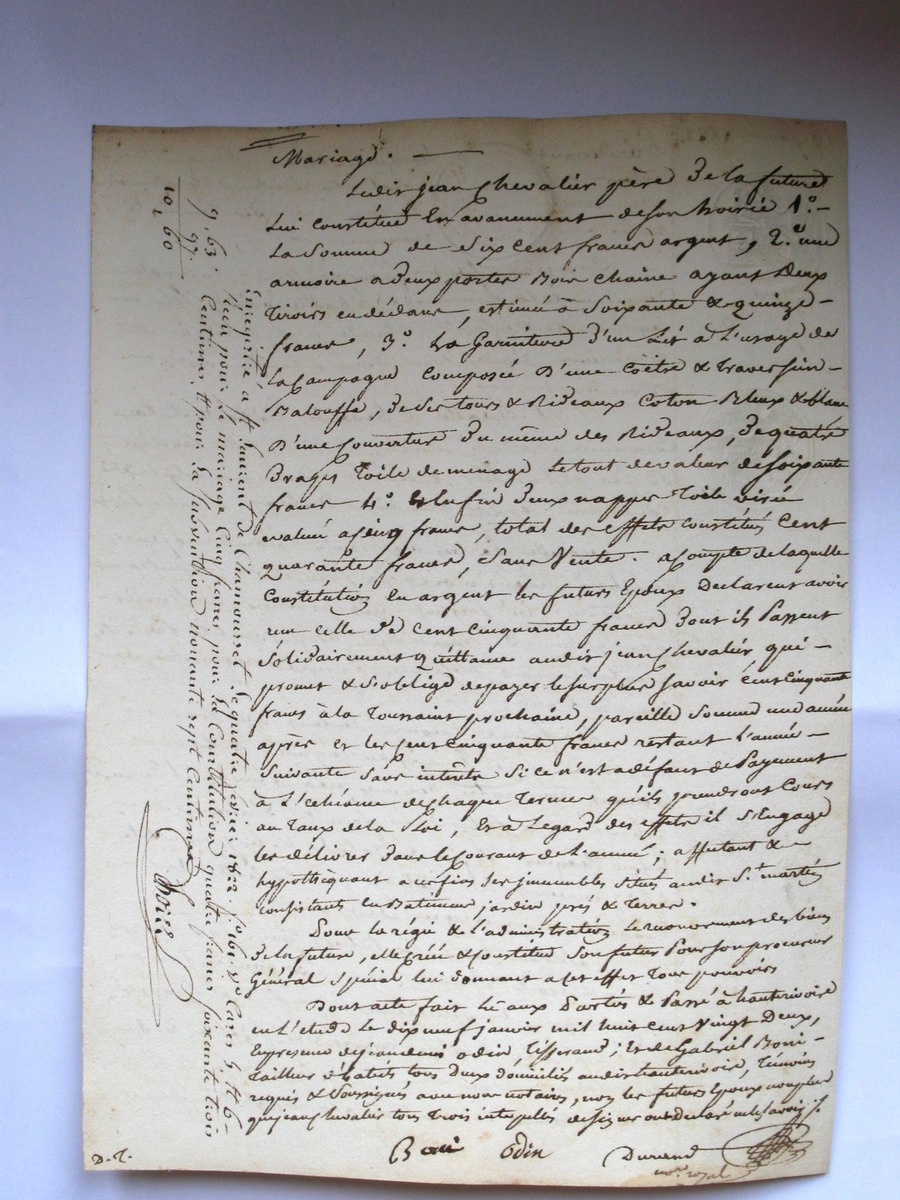 Mariage.
Ledit jean Chevalier père de la future
Lui constitue En avancement de son hoirie 1.º
La Somme de Six cent francs argent, 2.º une
armoire a deux portes Bois chaine ayant Deux
Tiroirs en dédans, estimée à Soixante & quinze
francs, 3.º La Garniture d'un Lit à L'usage de
la Campagne Composée D'une Coëtre & traversin
Balouffe, de Ses tours & Rideaux Coton Bleux & blanc
D'une Couverture du même des Rideaux, de quatre
Draps Toile de menage Le tout de valeur de Soixante
francs 4.º Enfin Deux nappes Toile
evalué a cinq francs, total des effets Constitués Cent
quarante francs, Sans Vente. a Compte de laquelle
Constitution En argent les futurs Epoux Declarent avoir
reçu celle de Cent Cinquante francs Dont ils Passent
Solidairement quittance audit jean Chevalier qui
promet & S'oblige de payer le Surplus Savoir Cent Cinquante
francs à la Toussaint prochaine, pareille Somme une année
après et les Cent Cinquante francs restant L'année
Suivante Sans intérêts Si ce n'est a défaut de Payement
à L'echéance de chaque Termes qu'ils prendront Cours
au Taux de la Loi, Et a Legard des effets il S'Engage
les délivrer Dans le Courant de L'année; affectant &
hypothéquant a ces fins Ses immeubles Situés audit S.t martin
Consistants en Batiments jardin prés & Terres.
Pour la régie & L'administration le recouvrement des biens
de la future, elle crée & Constitue Son futur Pour Son procureur
Général & Spécial lui donnant a cet effet Tous pouvoirs
Dont acte fait Lû aux Parties & Passé à hauterivoire
en L'etude Le dix neuf janvier mil huit cent Vingt Deux,
En presence de jean odin, tisserand; Et de Gabriel Boni
Tailleur d'habits tous Deux domiciliés audit hauterivoire, Témoins
requis & Soussignés avec nous notaires, non les futurs Epoux non plus
que jean Chevalier tous Trois interpellés de Signer ont Declaré ne le Savoir
Boni odin Durand
not.re royal
D.T.
Enregistré à S.t Laurent de Chamousset le quatre 1822. f.º 161. v.º Cases 5. et 6.
Reçu pour Le mariage Cinq francs, pour la Constitution quatre francs Soixante trois
Centimes, Et pour La Subvention nonante Sept Centimes
9, 63.
97.
10, 60